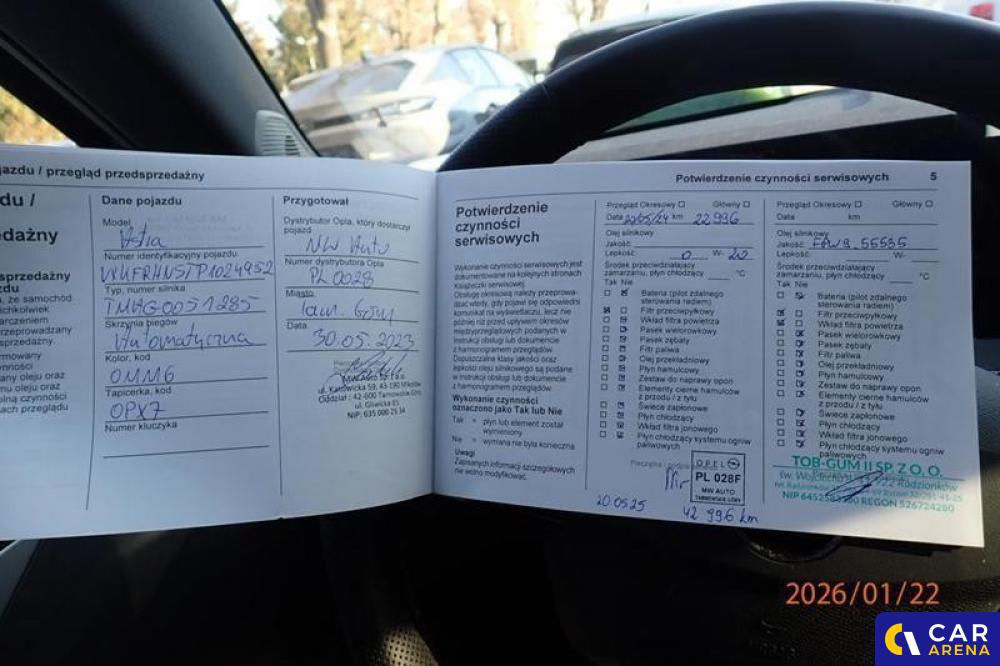 jazdu / przegląd przedsprzedażny
du /
edażny
sprzedażny
zdu
o, że samochód
ichkolwiek
tarczeniem
rzeprowadzany
sprzedażny.
rmowany
ynności
any oleju oraz
mu oleju oraz
olną czynności
ach przeglądu
Dane pojazdu
Model
Astra
Numer identyfikacyjny pojazdu
Typ, numer silnika
Skrzynia biegów
Automatyczna
Kolor, kod
0MM6
Tapicerka, kod
0PX7
Numer kluczyka
Przygotował
Dystrybutor Opla, który dostarczył
pojazd
MW Auto
Numer dystrybutora Opla
PL0028
Miasto
Tarn. Góry
Data
30.05.2023
ul. Katowicka 59, 43-190 Mikołów
Oddział: 42-600 Tarnowskie Góry
ul. Gliwicka 85
NIP: 635 000 25 34
Potwierdzenie czynności serwisowych 5
Potwierdzenie
czynności
serwisowych
Wykonanie czynności serwisowych jest
dokumentowane na kolejnych stronach
Książeczki serwisowej.
Obsługę okresową należy przeprowa-
dzać wtedy, gdy pojawi się odpowiedni
komunikat na wyświetlaczu, lecz nie
później niż przed upływem okresów
międzyprzeglądowych podanych w
Instrukcji obsługi lub dokumencie
z harmonogramem przeglądów.
Dopuszczalne klasy jakości oraz
lepkości oleju silnikowego są podane
w Instrukcji obsługi lub dokumencie
z harmonogramem przeglądów.
Wykonanie czynności
oznaczono jako Tak lub Nie
Tak = płyn lub element został
wymieniony
Nie = wymiana nie była konieczna
Uwagi
Zapisanych informacji szczegółowych
nie wolno modyfikować.
Przegląd Okresowy Główny
Data 22/05/24 km 22996
Olej silnikowy
Jakość
Lepkość 0 W- 20
Środek przeciwdziałający
zamarzaniu, płyn chłodzący °C
Tak Nie
Bateria (pilot zdalnego
sterowania radiem)
Filtr przeciwpyłkowy
Wkład filtra powietrza
Pasek wielorowkowy
Pasek zębaty
Filtr paliwa
Olej przekładniowy
Płyn hamulcowy
Zestaw do naprawy opon
Elementy cierne hamulców
z przodu / z tyłu
Świece zapłonowe
Płyn chłodzący
Wkład filtra jonowego
Płyn chłodzący systemu ogniw
paliwowych
OPEL
PL 028F
MW AUTO
TARNOWSKIE GÓRY
20.05.25
42 996 km
Przegląd Okresowy Główny
Data km
Olej silnikowy
Jakość
Lepkość W-
Środek przeciwdziałający
zamarzaniu, płyn chłodzący °C
Tak Nie
Bateria (pilot zdalnego
sterowania radiem)
Filtr przeciwpyłkowy
Wkład filtra powietrza
Pasek wielorowkowy
Pasek zębaty
Filtr paliwa
Olej przekładniowy
Płyn hamulcowy
Zestaw do naprawy opon
Elementy cierne hamulców
z przodu / z tyłu
Świece zapłonowe
Płyn chłodzący
Wkład filtra jonowego
Płyn chłodzący systemu ogniw
paliwowych
TOB-GUM II SP. Z O. O.
REGON 526724280
2026/01/22
CAR
ARENA